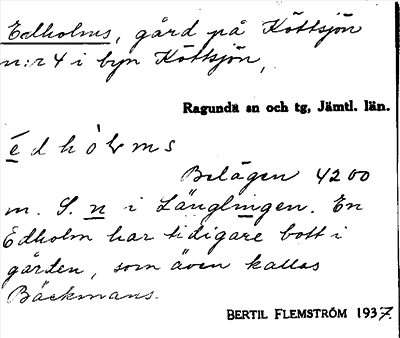 Edholms, gård på Köttsjön
n:r 4 i byn Köttsjön,
Ragunda sn och tg, Jämtl. län.
é d h ò l m s
Belägen 4200
m. S. n i Länglingen. En
Edholm har tidigare bott i
gården, som även kallas
Bäckmans.
BERTIL FLEMSTRÖM 1937.